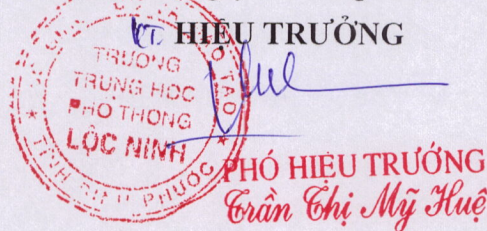 KT. HIỆU TRƯỞNG
TRƯỜNG
TRUNG HỌC
PHỔ THÔNG
LỘC NINH
TỈNH BÌNH PHƯỚC
PHÓ HIỆU TRƯỞNG
Trần Thị Mỹ Huệ